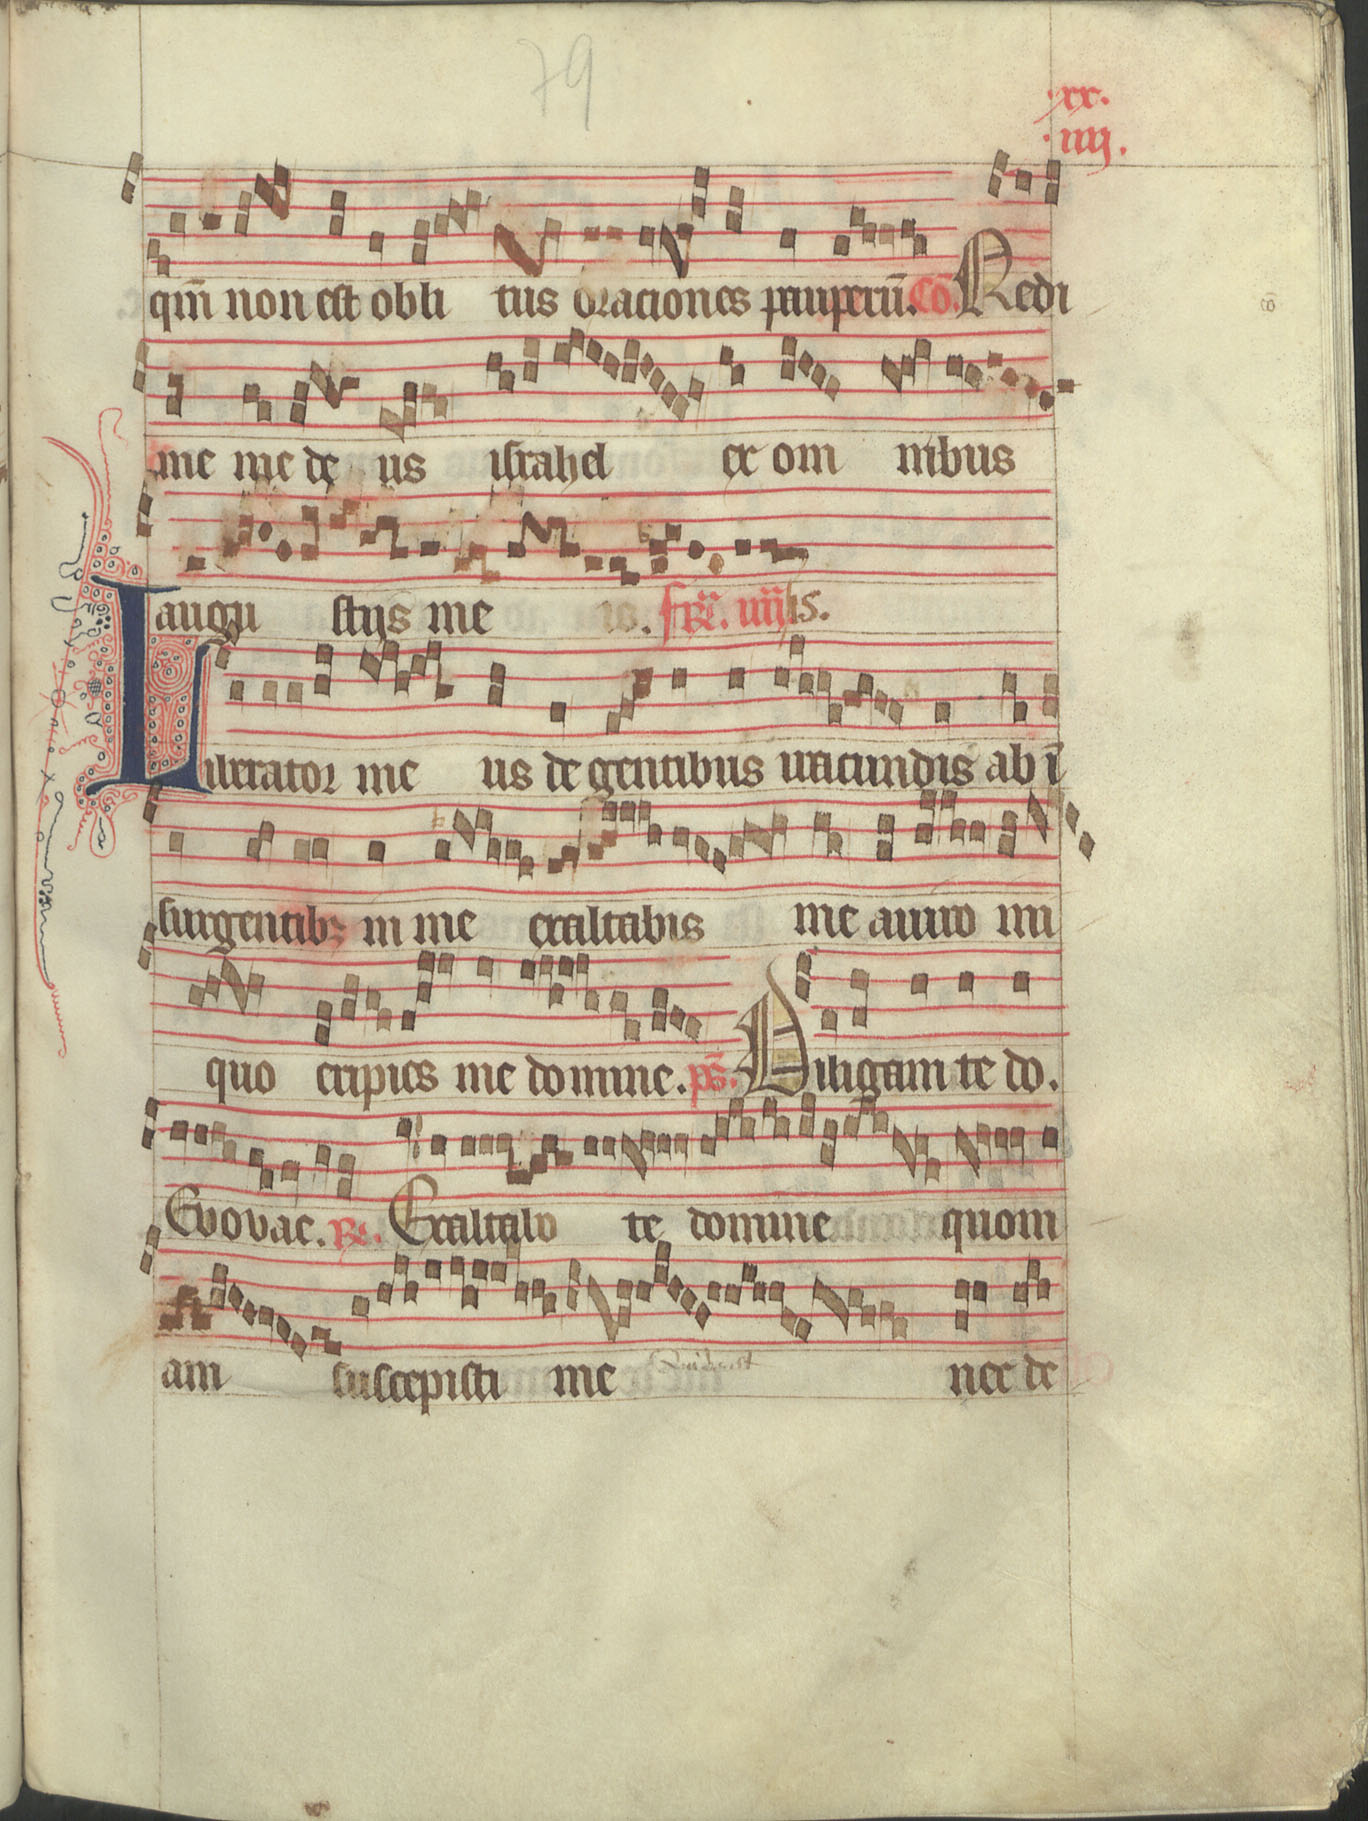 79
.xx.
.iiij.
qm̄ non est obli tus oraciones pauperū. Cō. Redi
cō
me me de us israhel ex om nibus
angu stijs me is. fr̄. iiij
Liberator me us de gentibus iracundis ab ī
surgentibꝫ in me exaltabis me a uiro ini
quo eripies me domine. ps̄. Diligam te do.
Evovae. R̄. Exaltabo te domine quoni
am suscepisti me nec de